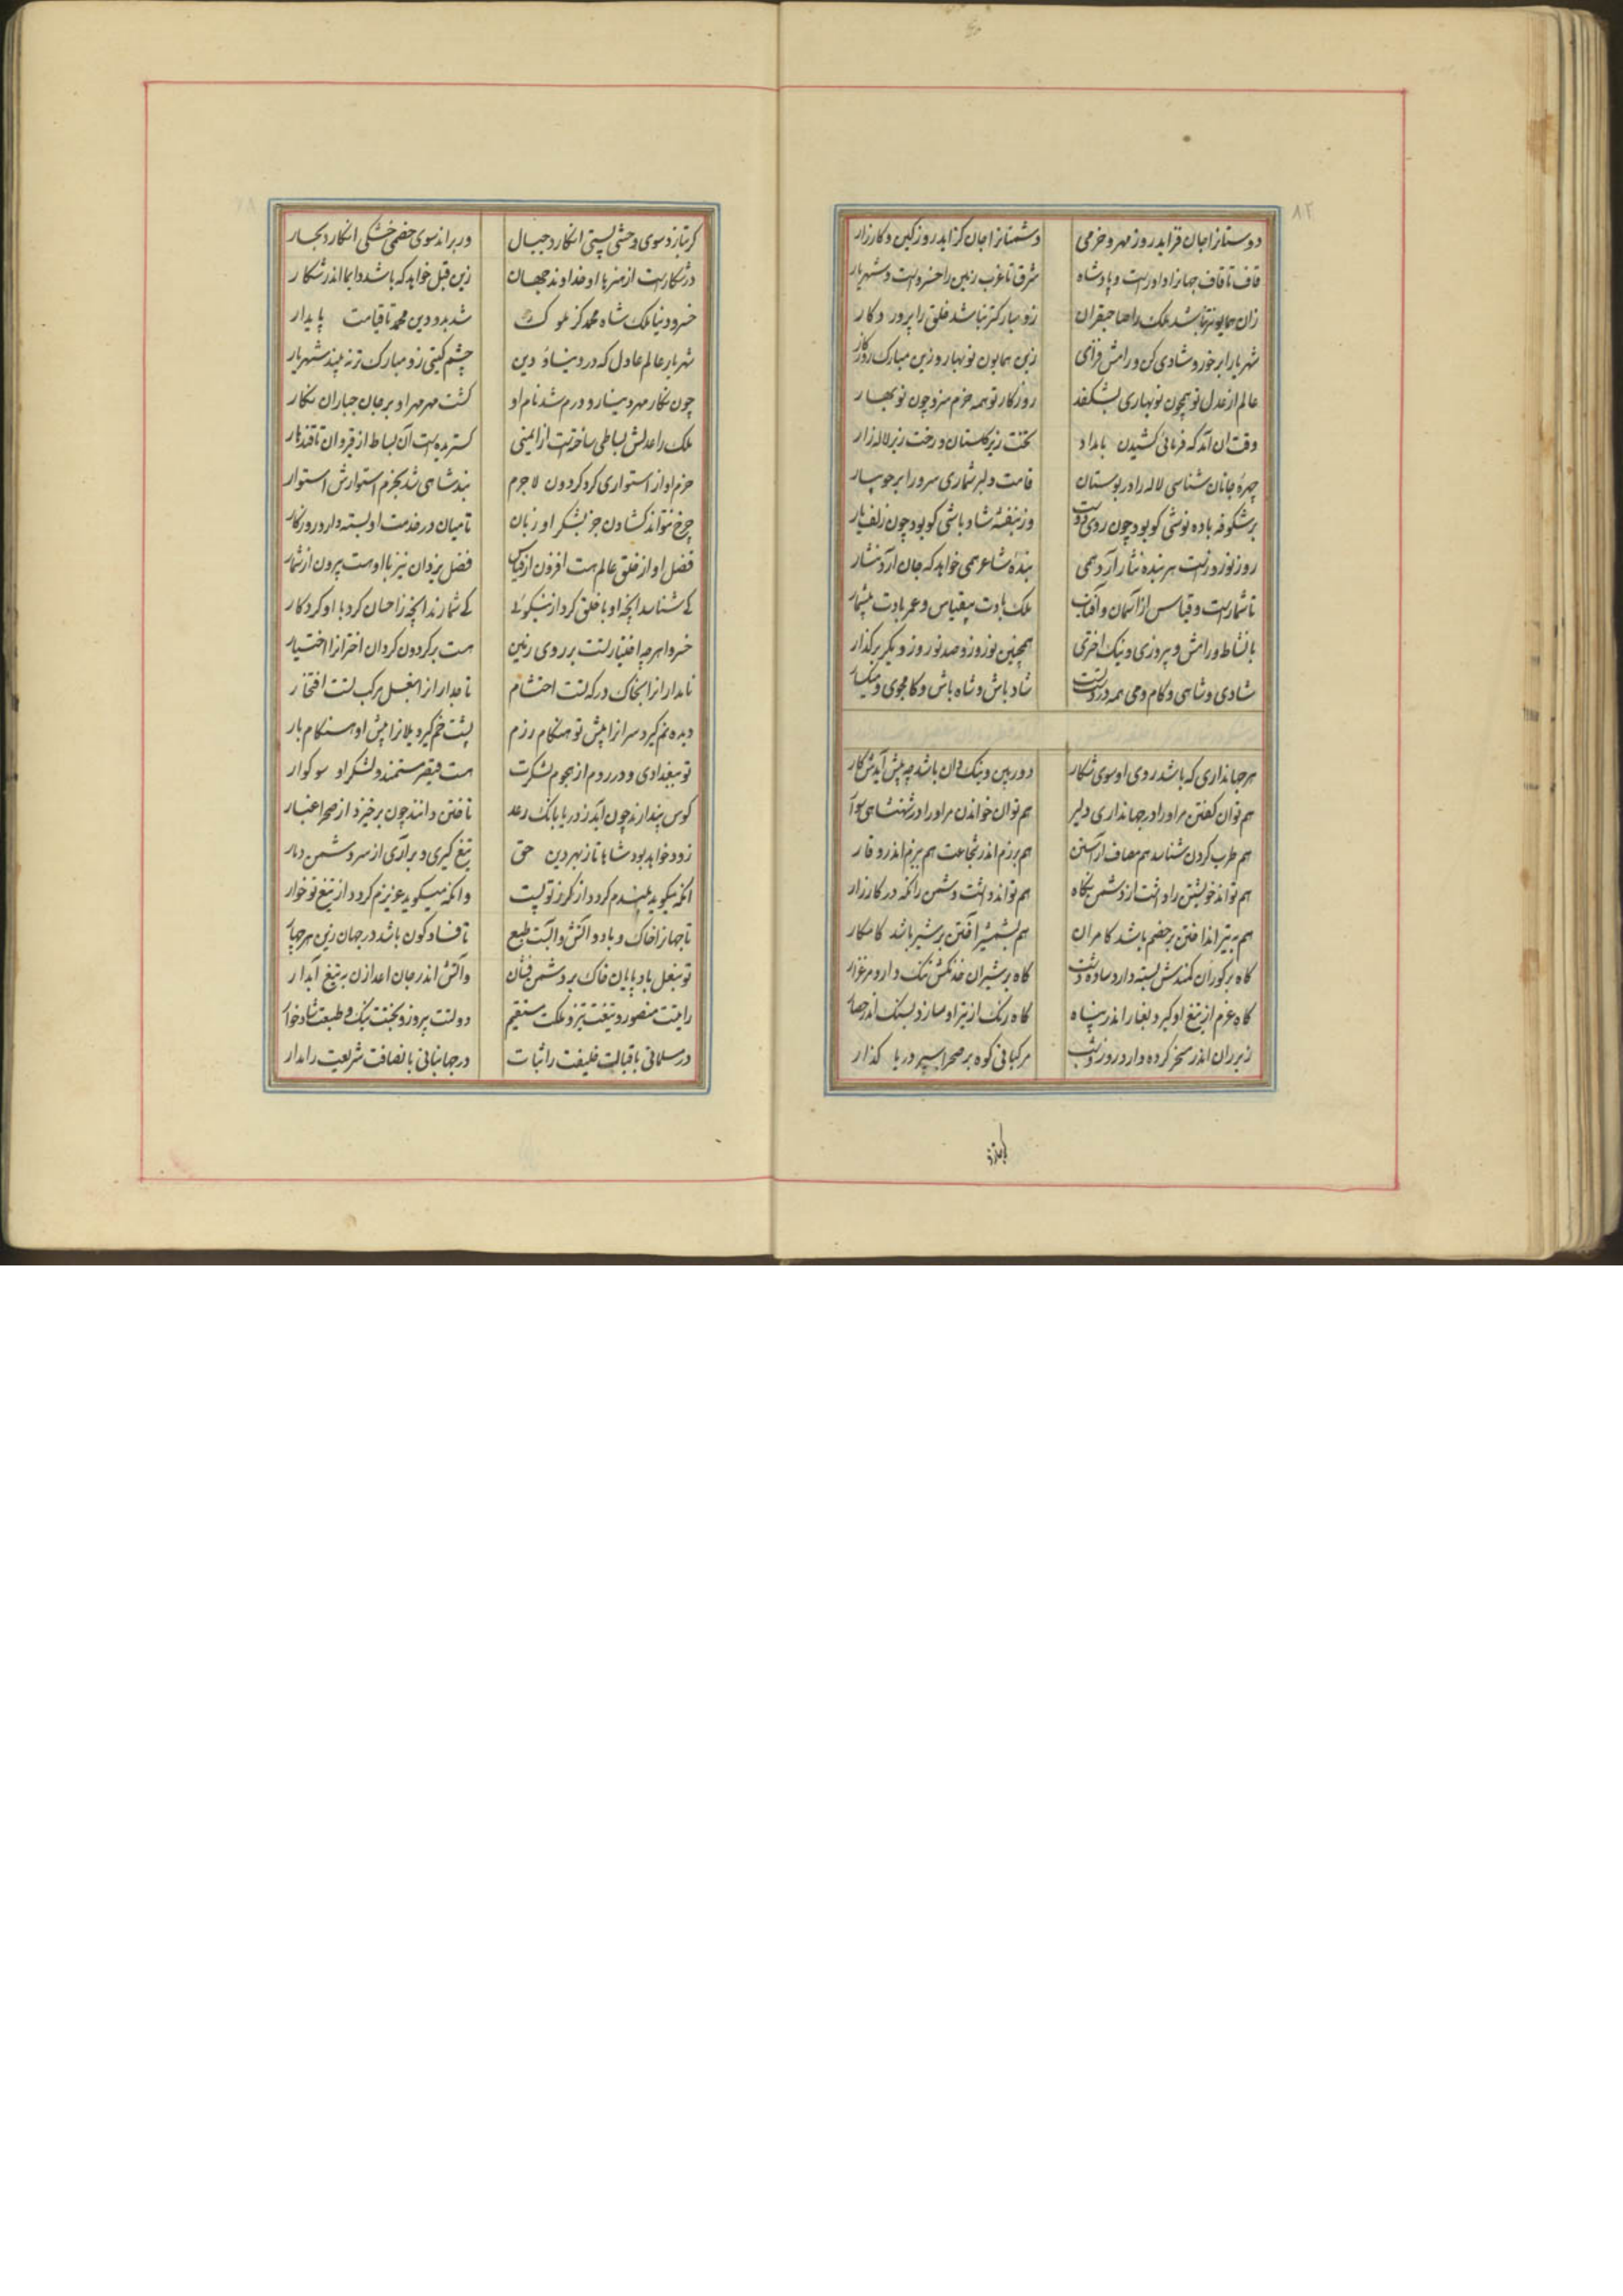 ۸۲
دوستانرا جان فزاید روز مهر و خرمی دشمنانرا جان گزاید روز کین و کارزار
قاف تا قاف جهانرا داورست و پادشاه شرق تا غرب زمین را خسروست و شهریار
زان همایونتر نباشد ملک را صاحبقران زو مبارکتر نباشد خلق را پروردگار
شهریارا برخور و شادی کن و رامش فزای زین همایون نوبهار و زین مبارک روزگار
عالم از عدل تو همچون نوبهاری بشکفد روزگار تو همه خرم سزد چون نوبهار
وقت آن آمد که فرمائی کشیدن بامداد تخت زیر گلستان و رخت زیر لاله زار
چهرهٔ جانان شناسی لاله را در بوستان قامت دلبر شماری سرو را بر جویبار
بر شکوفه باده نوشی کو بود چون روی دوست وز بنفشه شاد باشی کو بود چون زلف یار
روز نوروزست هر بنده نثار آرد همی بندهٔ شاعر همی خواهد که جان آرد نثار
تا شمارست و قیاس از آسمان و آفتاب ملک بادت بیقیاس و عمر بادت بیشمار
با نشاط و رامش و پیروزی و نیک اختری همچنین نوروز و صد نوروز دیگر برگذار
شادی و شاهی و کام و می همه در دست شاد باش و شاه باش و کامجوی و میگسار
هر جهانداری که باشد روی او سوی شکار دوربین و نیک دان باشد چه پیش آیدش کار
هم توان گفتن مر او را در جهانداری دلیر هم توان خواندن مر او را در شهنشاهی سوار
هم طرب کردن شناسد هم مصاف آراستن هم برزم اندر شجاعت هم ببزم اندر وقار
هم تواند خویشتن را داشت از دشمن نگاه هم تواند داشت دشمن را نگه در کارزار
هم به تیر انداختن بر خصم باشد کامران هم بشمشیر آختن بر شیر باشد کامکار
گاه بر گوران کمندش بسته دارد ساده دشت گاه بر شیران خدنگش تنگ دارد مرغزار
گاه غرم از تیغ او گیرد بغار اندر پناه گاه رنگ از تیر او سازد بسنگ اندر حصار
زیر ران اندر مسخر کرده دارد روز و شب مرکبانی کوه بر صحرا سپر دریا گذار
گر بتازد سوی وحشی پستی انگارد جبال ور براند سوی خصمی خشکی انگارد بحار
در شکارست از هنرها او خداوند جهان زین قبل خواهد که باشد دایما اندر شکار
خسرو دنیا ملک شاه محمد کز ملوک شد بدو دین محمد تا قیامت پایدار
شهریار عالم عادل که در دنیا و دین چشم گیتی زو مبارک تر نه بیند شهریار
چون نگار مهر دینار و درم شد نام او گشت مهر مهر او بر جان جباران نگار
ملک را عدلش بساطی ساختست از ایمنی گستریده است آن بساط از قیروان تا قندهار
حزم او از استواری کرد گردون لاجرم بند شاهی شد بحزم استوارش استوار
چرخ نتواند گشادن جز بشکر او زبان تا میان در خدمت او بسته دارد روزگار
فضل او از خلق عالم هست افزون از قیاس فضل یزدان نیز با او هست بیرون از شمار
که شناسد آنچه او با خلق کرد از نیکوئی که شمارند آنچه ز احسان کرد با او کردگار
خسروا هر چه اختیار تست بر روی زمین هست بر گردون گردان اختران را اختیار
نامدارانرا بخاک درگه تست احتشام تاجدارانرا بنعل مرکب تست افتخار
دیده نم گیرد سرانرا پیش تو هنگام رزم پشت خم گیرد یلانرا پیش او هنگام بار
تو ببغدادی و در روم از هجوم لشکرت هست قیصر مستمند و لشکر او سوکوار
کوس پندارند چون آید ز دریا بانگ رعد تاختن دانند چون برخیزد از صحرا غبار
زود خواهد بود شاها تا ز بهر دین حق تیغ گیری و برآری از سر دشمن دمار
آنکه میگوید بلندم گردد از گرز تو پست وانکه میگوید عزیزم گردد از تیغ تو خوار
تا جهانرا خاک و باد و آتش و آبست طبع تا فساد و کون باشد در جهان زین هر چهار
تو بنعل بادپایان خاک بر دشمن فشان وآتش اندر جان اعدا زن به تیغ آبدار
رایتت منصور و تیغت تیز و ملکت مستقیم دولتت پیروز و بختت نیک و طبعت شادخوار
در مسلمانی باقبالت خلیفت را ثبات در جهانبانی بانصافت شریعت را مدار